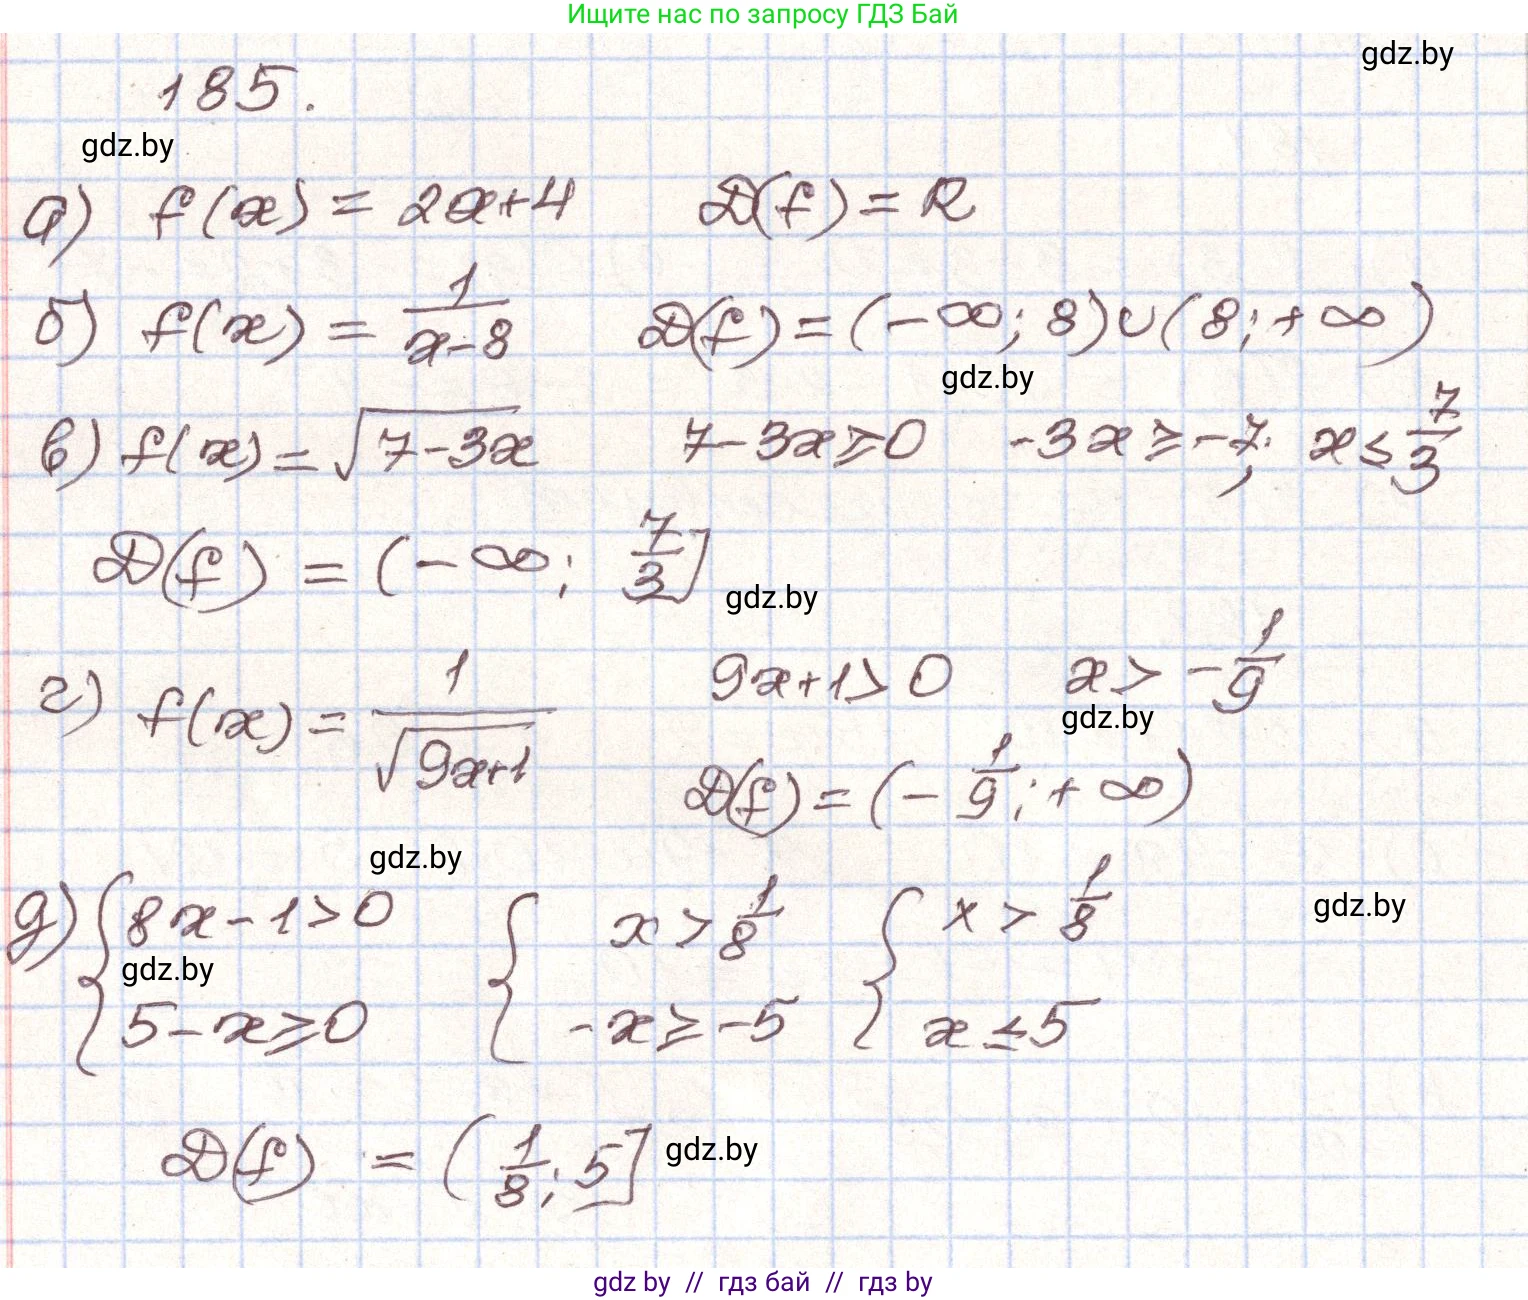 Ищите нас по запросу ГДЗ Бай
gdz.by
185.
gdz.by
а) f(x) = 2x+4 D(f) = R
б) f(x) = 1/(x-8) D(f) = (-∞; 8)∪(8; +∞)
gdz.by
в) f(x) = √(7-3x) 7-3x≥0 -3x≥-7; x≤7/3
D(f) = (-∞; 7/3]
gdz.by
г) f(x) = 1/√(9x+1) 9x+1>0 x>-1/9
gdz.by
D(f) = (-1/9; +∞)
gdz.by
д) { 8x-1>0 { x>1/8 { x>1/8
gdz.by
gdz.by
5-x≥0 -x≥-5 x≤5
D(f) = (1/8; 5]
gdz.by
gdz by // гдз бай // гдз by